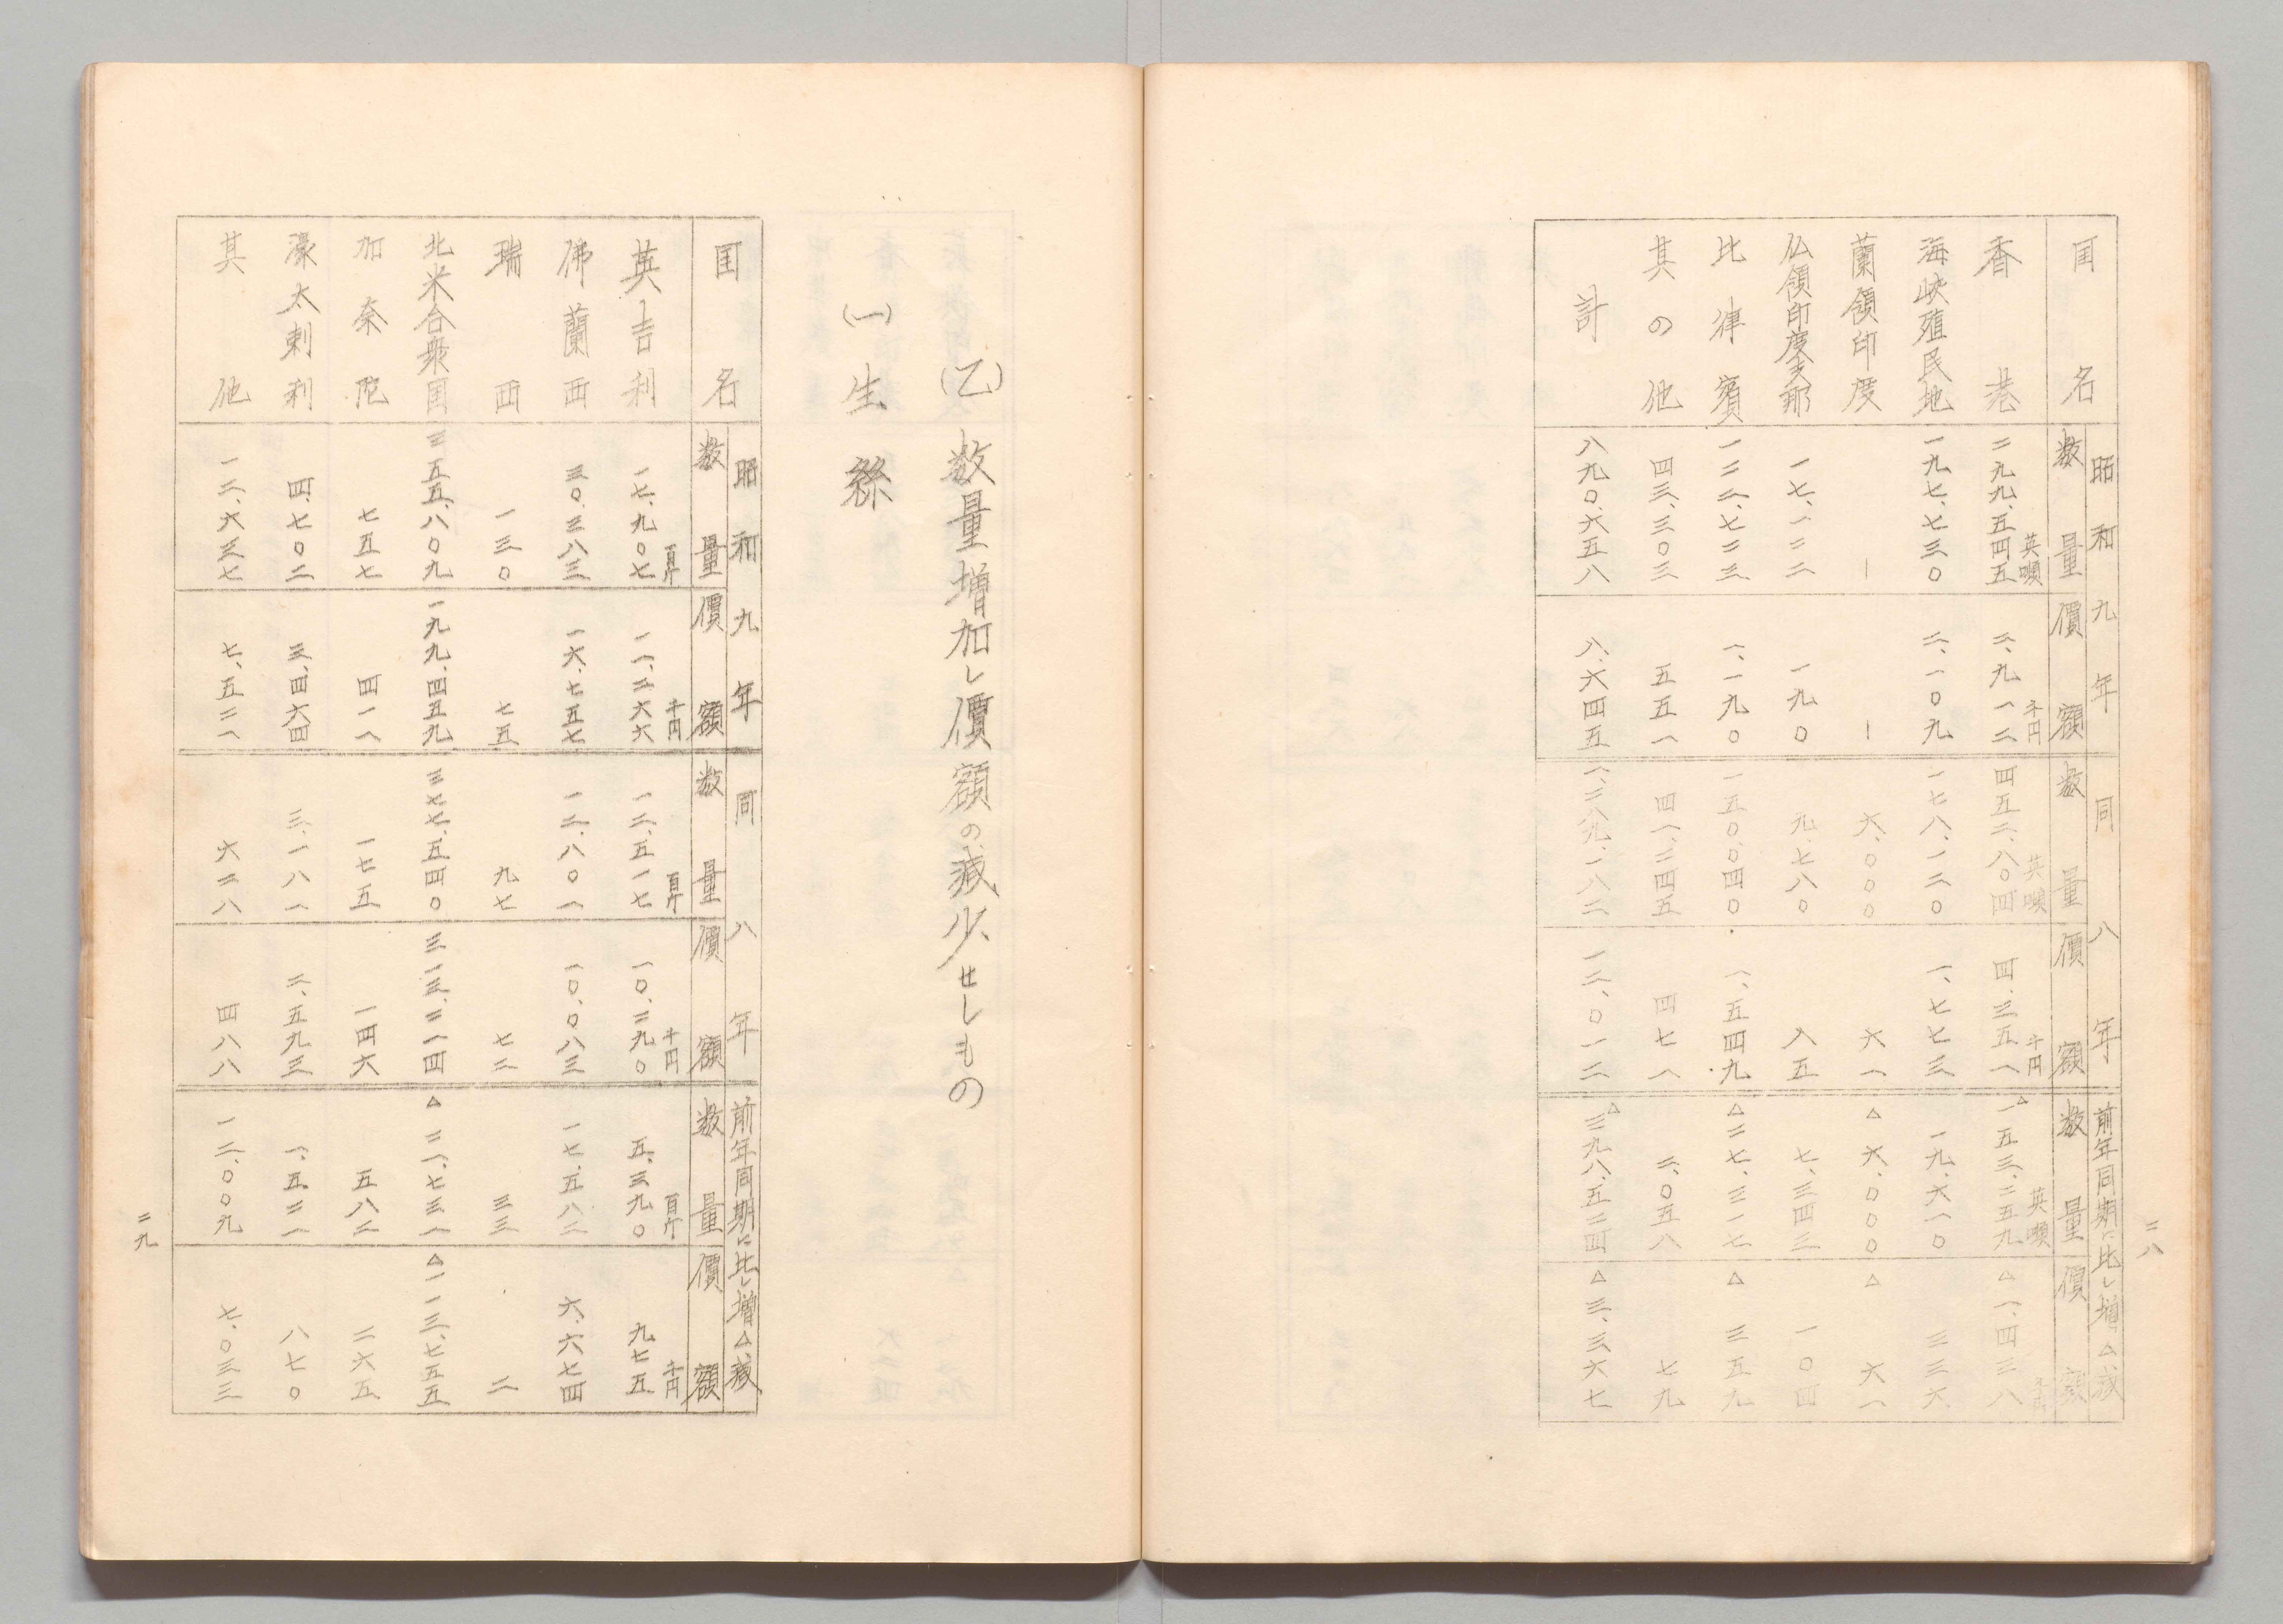 二八
国名 昭和九年 同八年 前年同期に比し増△減
数量 價額 数量 價額 数量 價額
英噸 千円 英噸 千円 英噸 千円
香港 二九九、五四五 二、九一二 四五二、八〇四 四、三五一 △一五三、二五九 △一、四三八
海峡殖民地 一九七、七三〇 二、一〇九 一七八、一二〇 一、七七三 一九、六一〇 三三六
蘭領印度 — — 六、〇〇〇 六一 △六、〇〇〇 △六一
仏領印度支那 一七、一二二 一九〇 九、七八〇 八五 七、三四三 一〇四
比律賓 一二二、七二三 一、一九〇 一五〇、〇四〇 一、五四九 △二七、三一七 △三五九
其の他 四三、三〇三 五五一 四一、二四五 四七一 二、〇五八 七九
計 八九〇、六五八 八、六四五 一、二八九、一八二 一二、〇一二 △三九八、五二四 △三、三六七
(乙)数量増加し價額の減少せしもの
(一)生絲
国名 昭和九年 同八年 前年同期に比し増△減
数量 價額 数量 價額 数量 價額
百斤 千円 百斤 千円 百斤 千円
英吉利 一七、九〇七 一一、二六六 一二、五一七 一〇、二九〇 五、三九〇 九七五
佛蘭西 三〇、三八三 一六、七五七 一二、八〇一 一〇、〇八三 一七、五八二 六、六七四
瑞西 一三〇 七五 九七 七二 三三 二
北米合衆国 三五五、八〇九 一九九、四五九 三七七、五四〇 三一三、二一四 △二一、七三一 △一一三、七五五
加奈陀 七五七 四一一 一七五 一四六 五八二 二六五
濠太剌利 四、七〇二 三、四六四 三、一八一 二、五九三 一、五二一 八七〇
其他 一二、六三七 七、五二一 六二八 四八八 一二、〇〇九 七、〇三三
二九